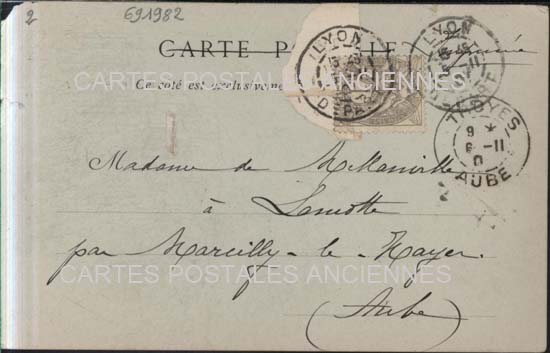 2
691982
CARTE POSTALE
Ce côté est exclusivement
LYON
DEPART
LYON
TROYES
9 *
6 -11
0
AUBE
Madame de
à Lamotte
par Marcilly-le-Hayer
(Aube)
CARTES POSTALES ANCIENNES
CARTES POSTALES ANCIENNES